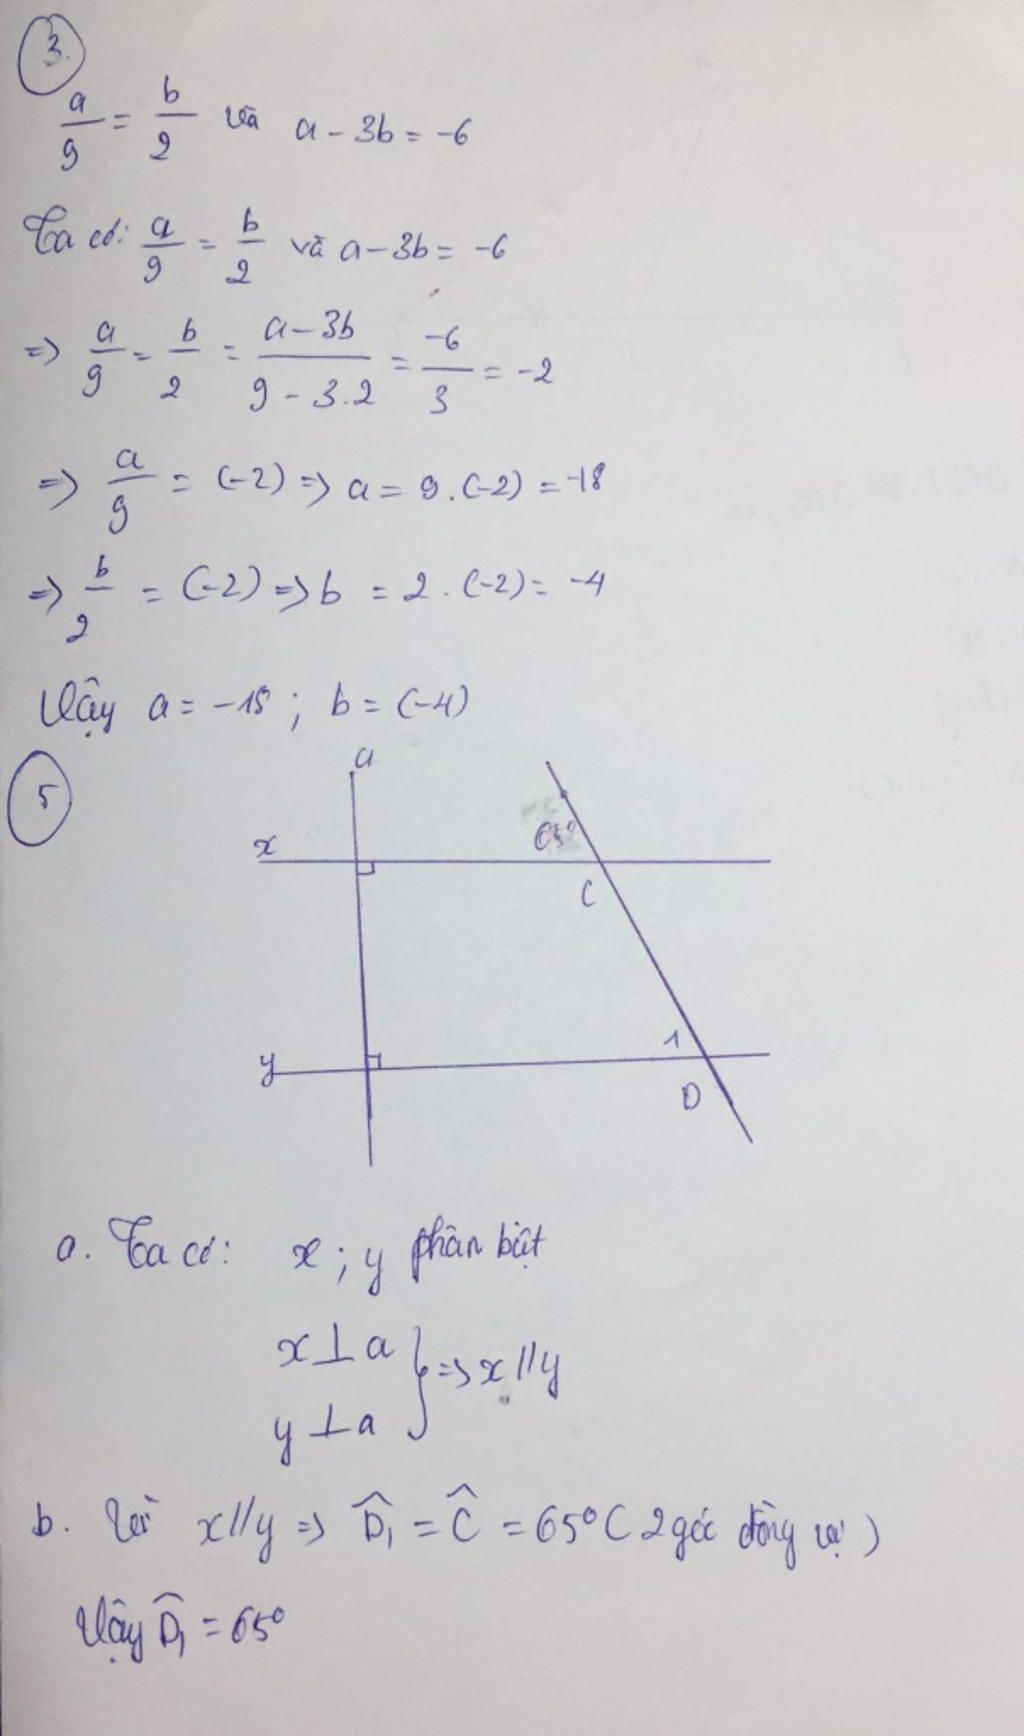 3.
a/9 = b/2 và a - 3b = -6
Ta có: a/9 = b/2 và a - 3b = -6
=> a/9 = b/2 = (a - 3b)/(9 - 3.2) = -6/3 = -2
=> a/9 = (-2) => a = 9.(-2) = -18
=> b/2 = (-2) => b = 2.(-2) = -4
Vậy a = -18 ; b = (-4)
5
a
x
65°
C
1
y
D
a. Ta có: x ; y phân biệt
x ⊥ a
y ⊥ a } => x // y
b. Vì x // y => D̂₁ = Ĉ = 65° ( 2 góc đồng vị )
Vậy D̂₁ = 65°